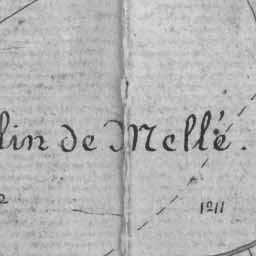 lin de Mellé.
1211